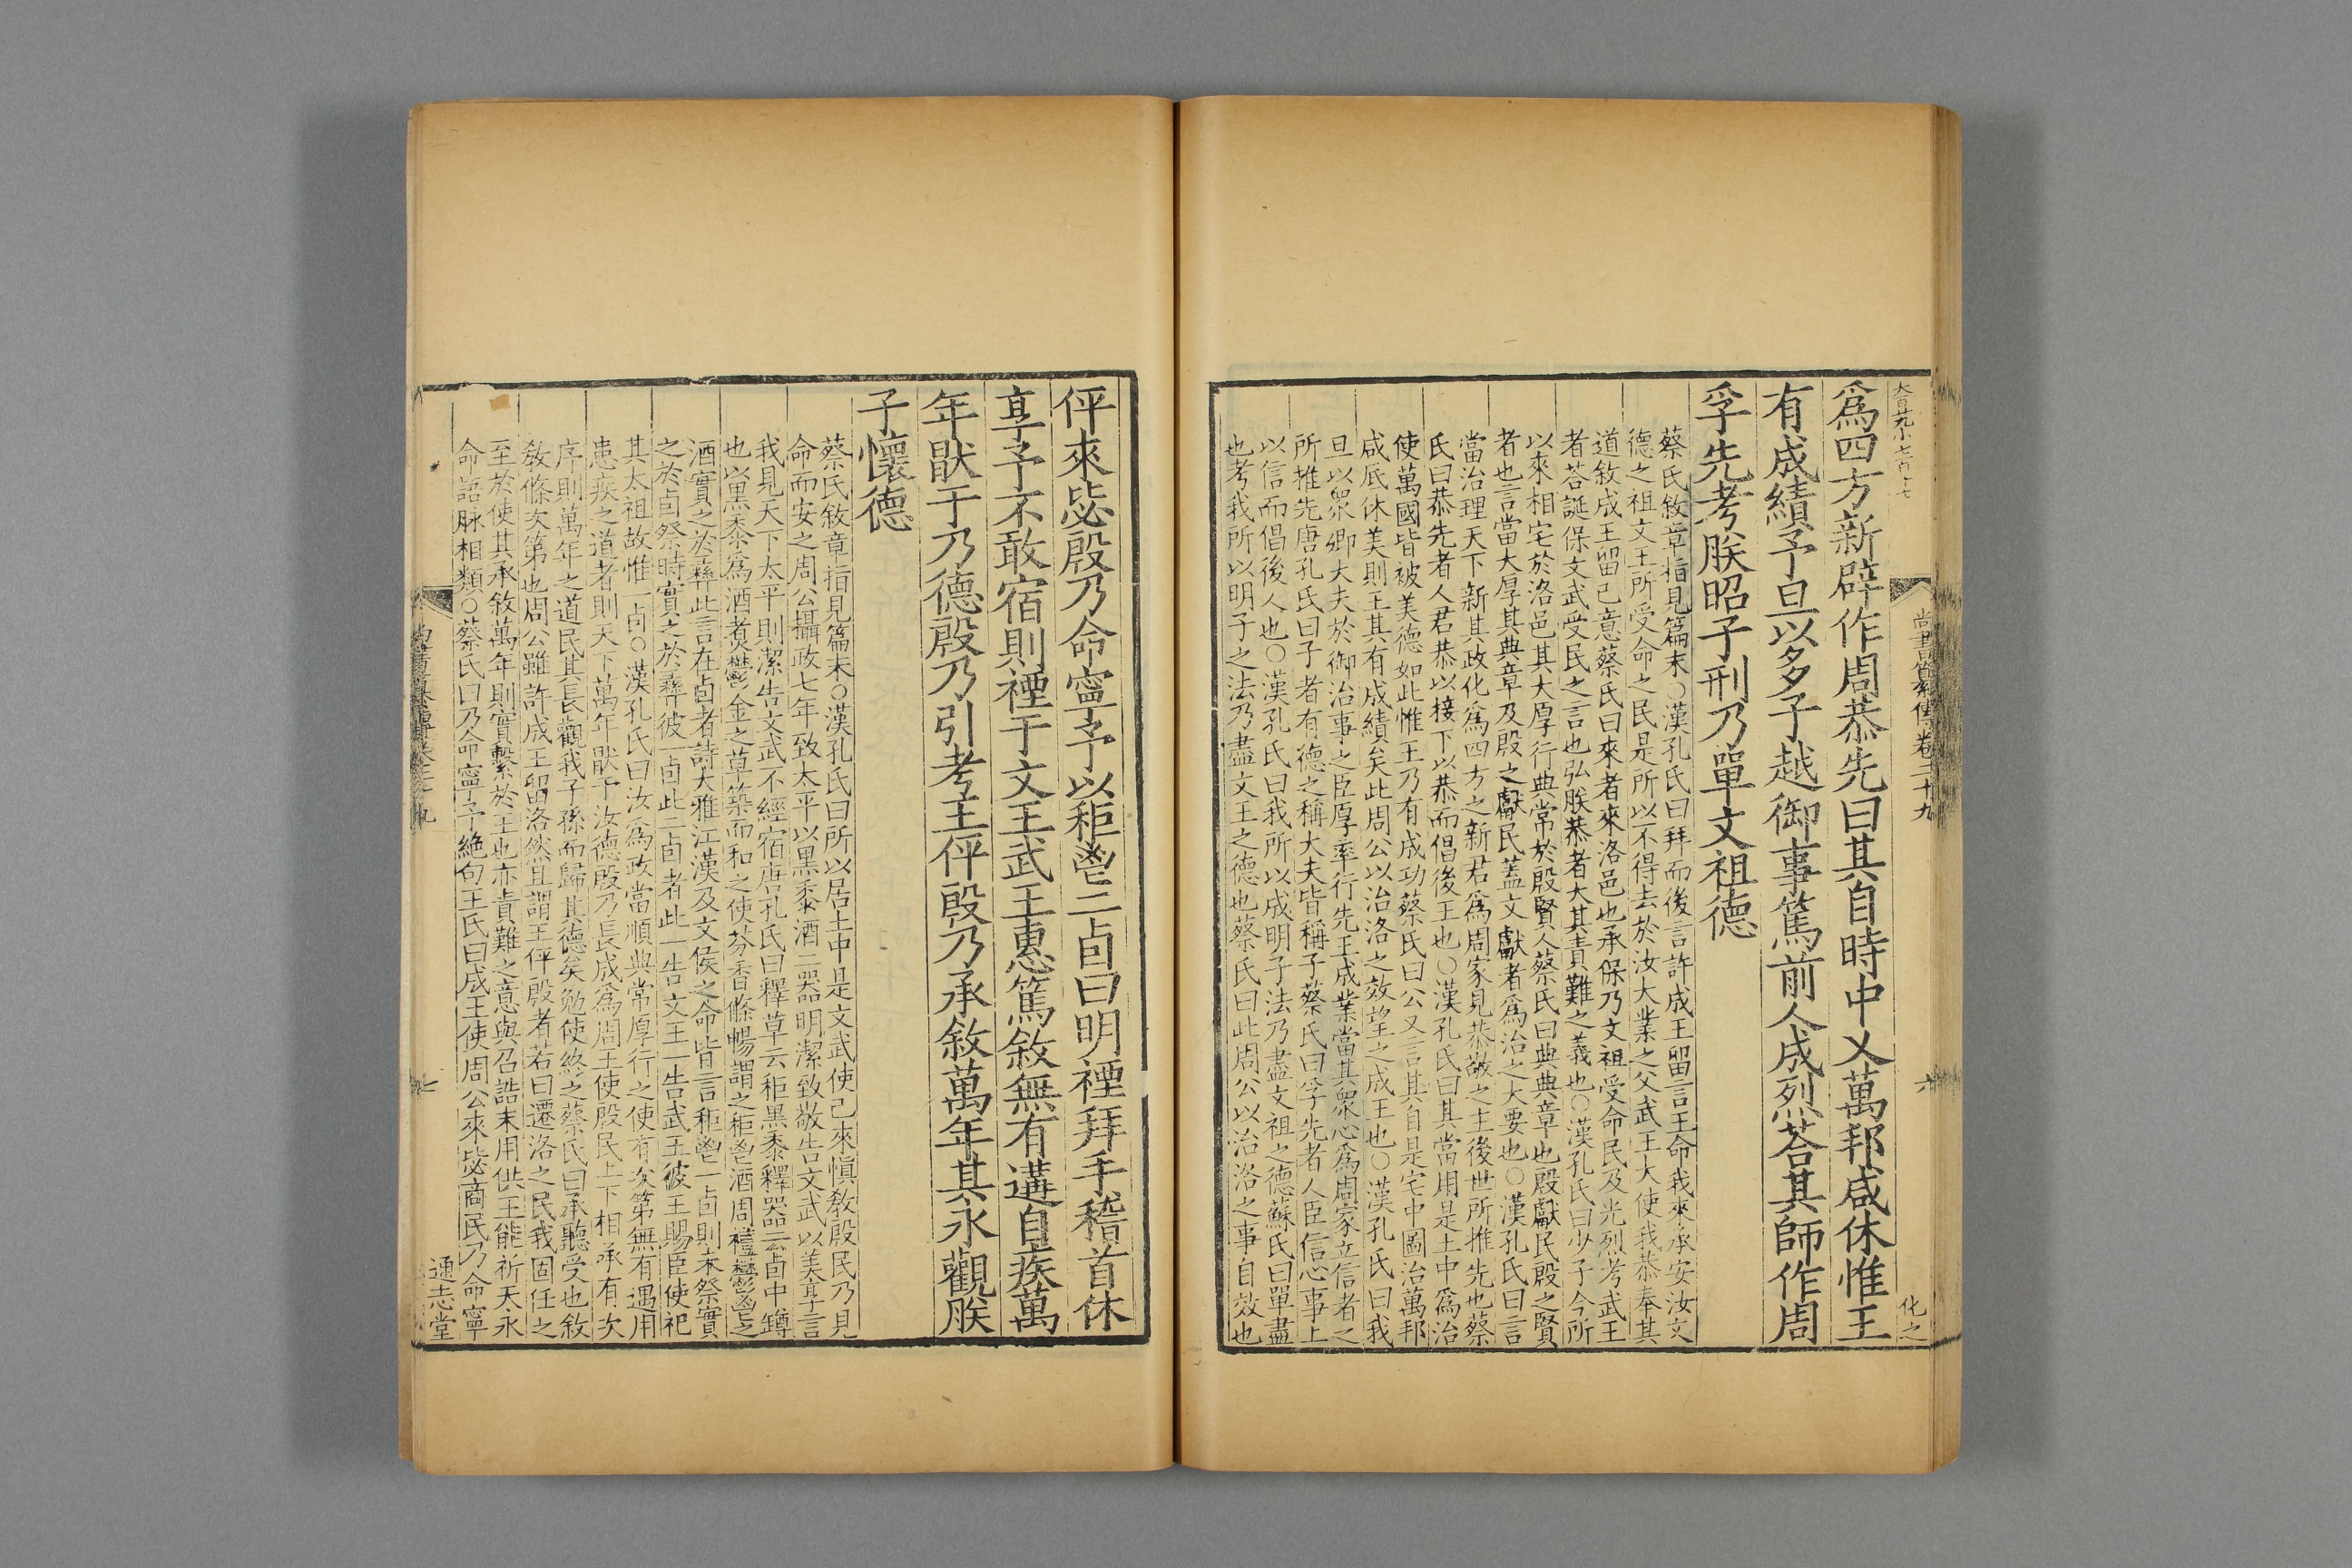 尚書纂傳卷二十九
六
化之
爲四方新辟作周恭先曰其自時中乂萬邦咸休惟王
有成績予旦以多子越御事篤前人成烈荅其師作周
孚先考朕昭子刑乃單文祖德
蔡氏敘章指見篇末○漢孔氏曰拜而後言許成王留言王命我來承安汝文
德之祖文王所受命之民是所以不得去於汝大業之父武王大使我恭奉其
道敘成王留己意蔡氏曰來者來洛邑也承保乃文祖受命民及光烈考武王
者荅誕保文武受民之言也弘朕恭者大其責難之義也○漢孔氏曰少子今所
以來相宅於洛邑其大厚行典常於殷賢人蔡氏曰典典章也殷獻民殷之賢
者也言當大厚其典章及殷之獻民蓋文獻者爲治之大要也○漢孔氏曰言
當治理天下新其政化爲四方之新君爲周家見恭敬之主後世所推先也蔡
氏曰恭先者人君恭以接下以恭而倡後王也○漢孔氏曰其當用是土中爲治
使萬國皆被美德如此惟王乃有成功蔡氏曰公又言其自是宅中圖治萬邦
咸底休美則王其有成績矣此周公以治洛之效望之成王也○漢孔氏曰我
旦以衆卿大夫於御治事之臣厚率行先王成業當其衆心爲周家立信者之
所推先唐孔氏曰子者有德之稱大夫皆稱子蔡氏曰孚先者人臣信心事上
以信而倡後人也○漢孔氏曰我所以成明子法乃盡文祖之德蘇氏曰單盡
也考我所以明子之法乃盡文王之德也蔡氏曰此周公以治洛之事自效也
伻來毖殷乃命寧予以秬鬯二卣曰明禋拜手稽首休
享予不敢宿則禋于文王武王惠篤敘無有遘自疾萬
年猒于乃德殷乃引考王伻殷乃承敘萬年其永觀朕
子懷德
蔡氏敘章指見篇末○漢孔氏曰所以居土中是文武使己來愼敎殷民乃見
命而安之周公攝政七年致太平以黑黍酒二器明潔致敬告文武以美享言
我見天下太平則潔告文武不經宿唐孔氏曰釋草云秬黑黍釋器云卣中罇
也以黑黍爲酒煮鬱金之草築而和之使芬香條暢謂之秬鬯酒周禮鬱鬯之
酒實之於彝此言在卣者詩大雅江漢及文侯之命皆言秬鬯一卣則未祭實
之於卣祭時實之於彝彼一卣此二卣者此一告文王一告武王彼王賜臣使祀
其太祖故惟一卣○漢孔氏曰汝爲政當順典常厚行之使有次第無有遇用
患疾之道者則天下萬年猒于汝德殷乃長成爲周王使殷民上下相承有次
序則萬年之道民其長觀我子孫而歸其德矣勉使終之蔡氏曰承聽受也敘
敎條次第也周公雖許成王留洛然且謂王伻殷者若曰遷洛之民我固任之
至於使其承敘萬年則實繫於王也亦責難之意與召誥末用供王能祈天永
命語脉相類○蔡氏曰乃命寧予絶句王氏曰成王使周公來毖商民乃命寧
七
通志堂